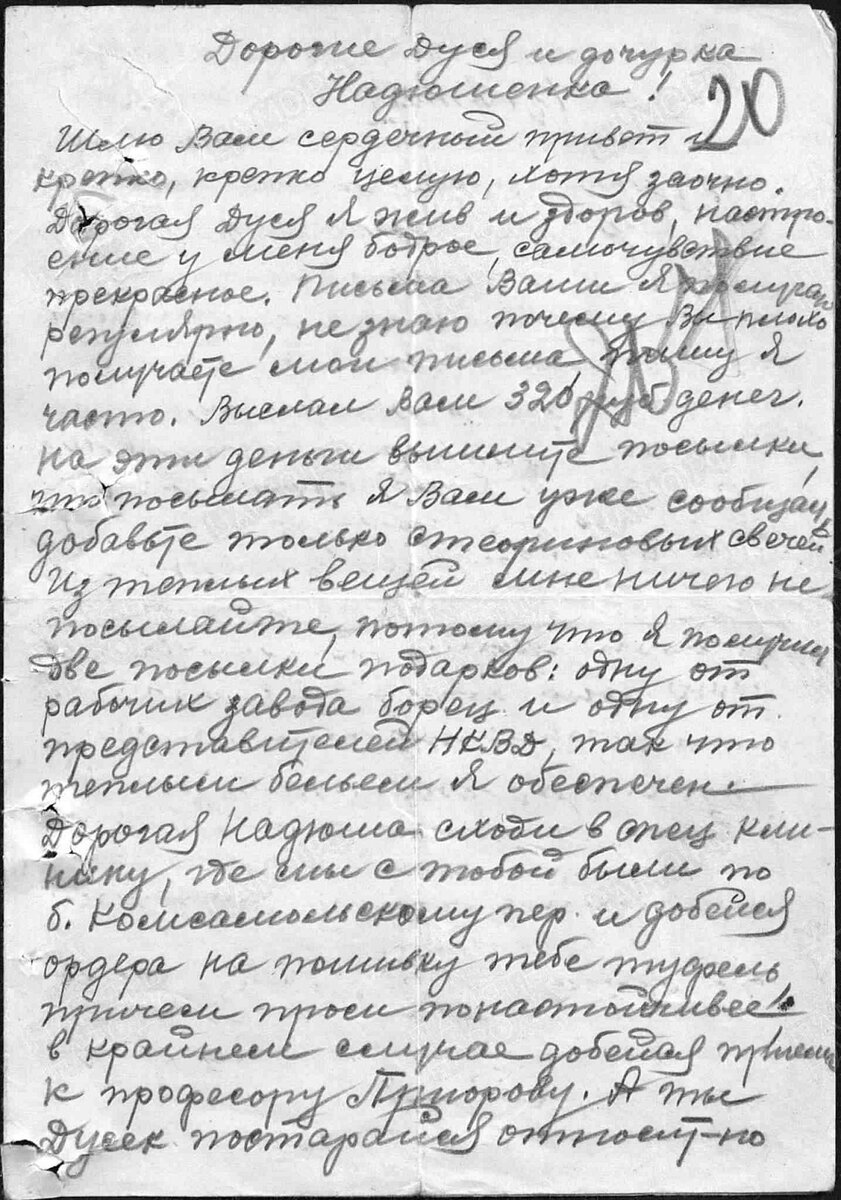 Дорогие Дуся и дочурка
Надюшенка!
20
Шлю Вам сердечный привет и
крепко, крепко целую, хотя заочно.
Дорогая Дуся я жив и здоров, настро-
ение у меня бодрое, самочувствие
прекрасное. Письма Ваши я получаю
регулярно, не знаю почему Вы плохо
получаете мои письма, пишу я
часто. Выслал Вам 320 руб денег.
на эти деньги вышлите посылки,
что посылать я Вам уже сообщал,
добавьте только стеориновых свечей.
Из теплых вещей мне ничего не
посылайте, потому что я получил
две посылки подарков: одну от
рабочих завода борец и одну от
представителей НКВД, так что
теплым бельем я обеспечен
Дорогая Надюша сходи в спец кли-
нику, где мы с тобой были по
б. Комсамольскому пер. и добейся
ордера на пошивку тебе туфель
причем проси понастойчивее!
в крайнем случае добейся приема
к професору Приорову. А ты
Дусек постарайся относит-но